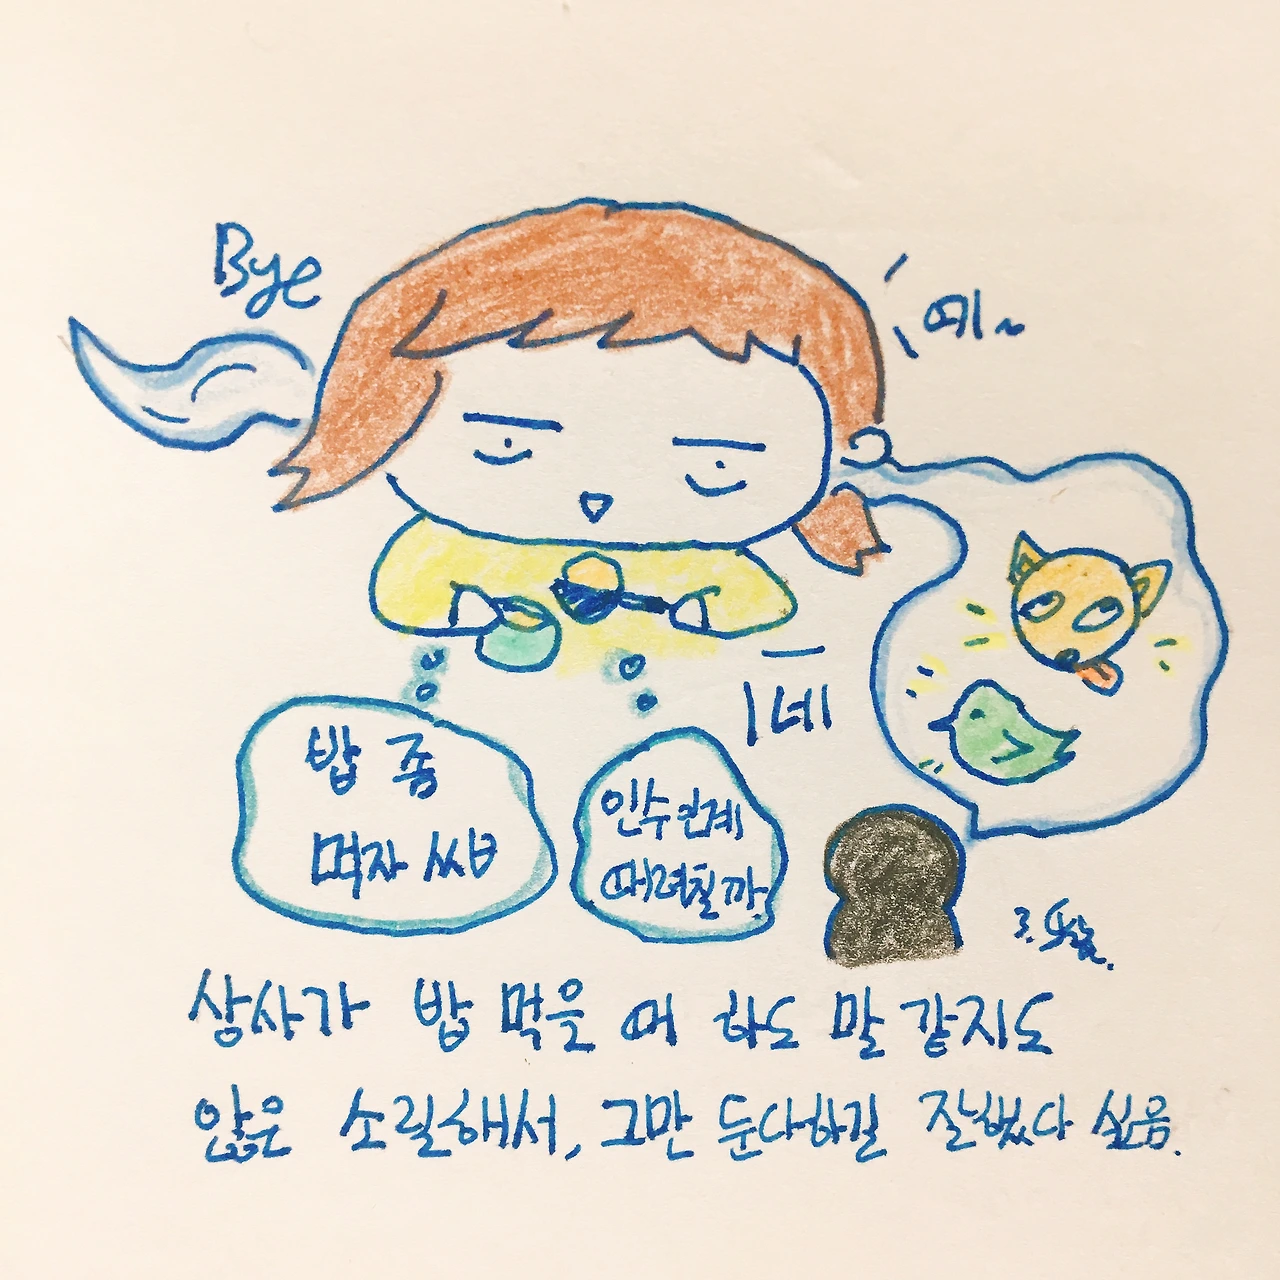 Bye
예~
네
밥 좀
먹자 씨ㅂ
인수인계
때려칠까
상사가 밥 먹을 때 하도 말 같지도
않은 소릴해서, 그만 둔다하길 잘했다 싶음.